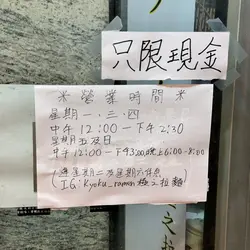 只限現金
※營業時間※
星期一、三、四
中午12:00－下午2:30
星期五及日
中午12:00－下午3:00,晚上6:00-8:00
(逢星期二及星期六休息
(IG:Kyoku_ramen極之拉麵)
之